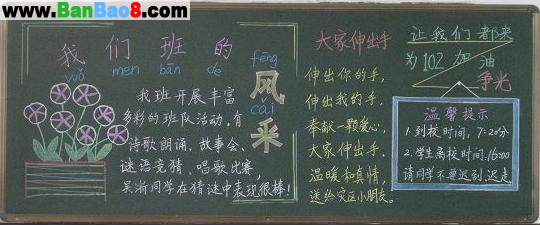 www.BanBao8.com
我们班的
wǒ men bān de
fēng
风
cǎi
采
我班开展丰富
多彩的班队活动。有
诗歌朗诵、故事会、
谜语竞猜、唱歌比赛,
吴浙同学在猜谜中表现很棒!
大家伸出手
伸出你的手,
伸出我的手,
奉献一颗爱心,
大家伸出手,
温暖和真情,
送给灾区小朋友。
让我们都来
为102加油
争光
温馨提示
1.到校时间,7:20分
2.学生离校时间,16:00
请同学不要迟到,迟走